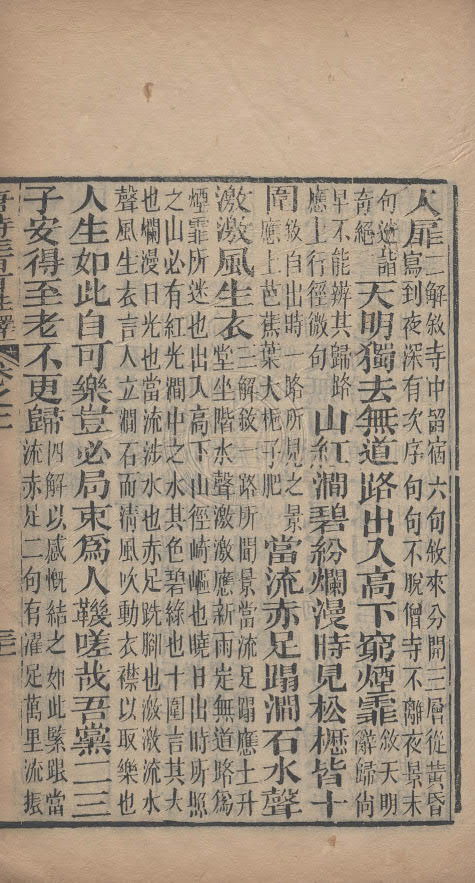 入扉二解敘寺中留宿六句敘來分開三層從黃昏
寫到夜深有次序句句不脫僧寺不離夜景末
句遒
奇絕天明獨去無道路出入高下窮煙霏敘天明
辭歸尚
早不能辨其歸路
應上行徑微句山紅澗碧紛爛漫時見松櫪皆十
圍敘自出時一路所見之景
應上芭蕉葉大梔子肥當流赤足蹋澗石水聲
激激風生衣三解敘一路所聞景當流足蹋應上升
堂坐階水聲激激應新雨定無道路爲
煙霏所迷也出入高下山徑崎嶇也曉日出時所照
之山必有紅光澗中之水其色碧綠也十圍言其大
也爛漫日光也當流涉水也赤足跣腳也激激流水
聲風生衣言人立澗石而清風吹動衣襟以取樂也
人生如此自可樂豈必局束爲人鞿嗟哉吾黨二三
子安得至老不更歸四解以感慨結之如此緊跟當
流赤足二句有濯足萬里流振